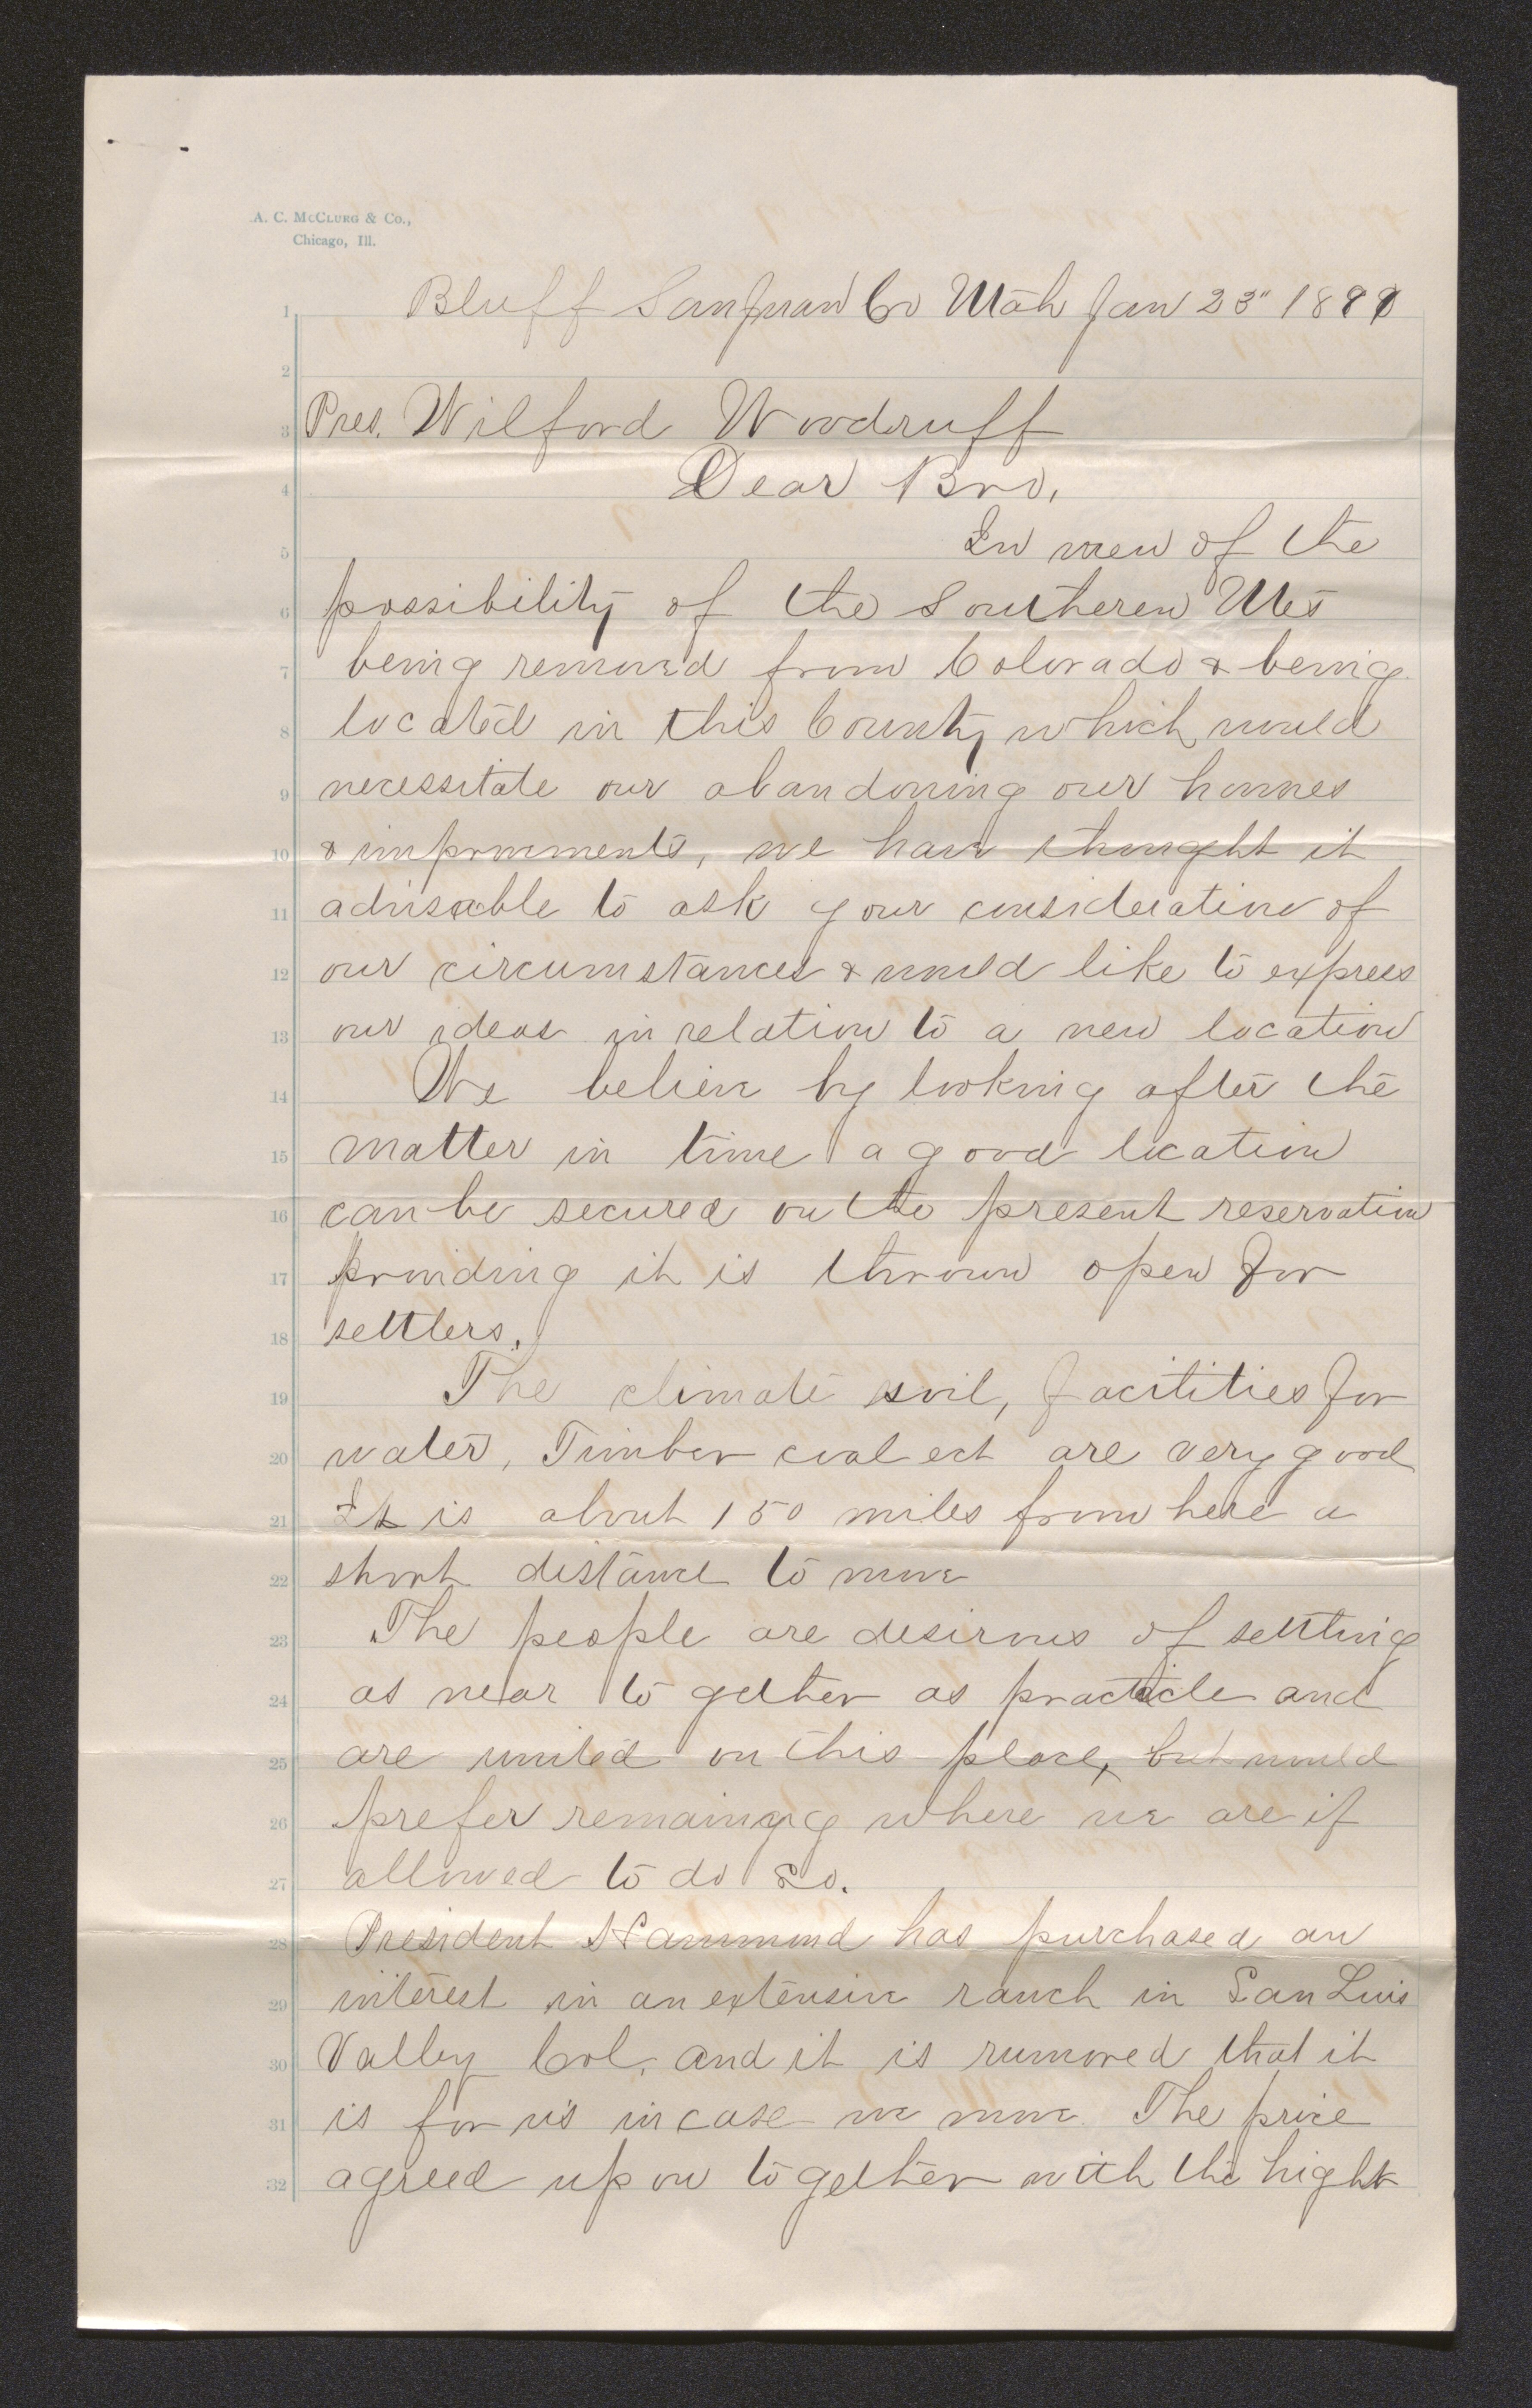 A. C. McClurg & Co.,
Chicago, Ill.
1 Bluff San Juan Co Utah Jan 23" 1889
2
3 Pres. Wilford Woodruff
4 Dear Bro.
5 In view of the
6 possibility of the Southeren Utes
7 being removed from Colorado & being
8 located in this County which would
9 necessitate our abandoning our homes
10 & improvments, we have thought it
11 adviseable to ask your consideration of
12 our circumstances & would like to express
13 our ideas in relation to a new location
14 We believe by looking after the
15 matter in time a good location
16 can be secured on the present reservation
17 providing it is thrown open for
18 settlers.
19 The climate soil, facitities for
20 water, Timber coal ect are very good
21 It is about 150 miles from here a
22 short distance to move
23 The people are desirous of settling
24 as near to gether as practicle and
25 are united on this place, but would
26 prefer remaining where we are if
27 allowed to do so.
28 President Hammond has purchased an
29 interest in an extensive ranch in San Luis
30 Valley Col. and it is rumored that it
31 is for us in case we move. The price
32 agreed upon to gether with the hight